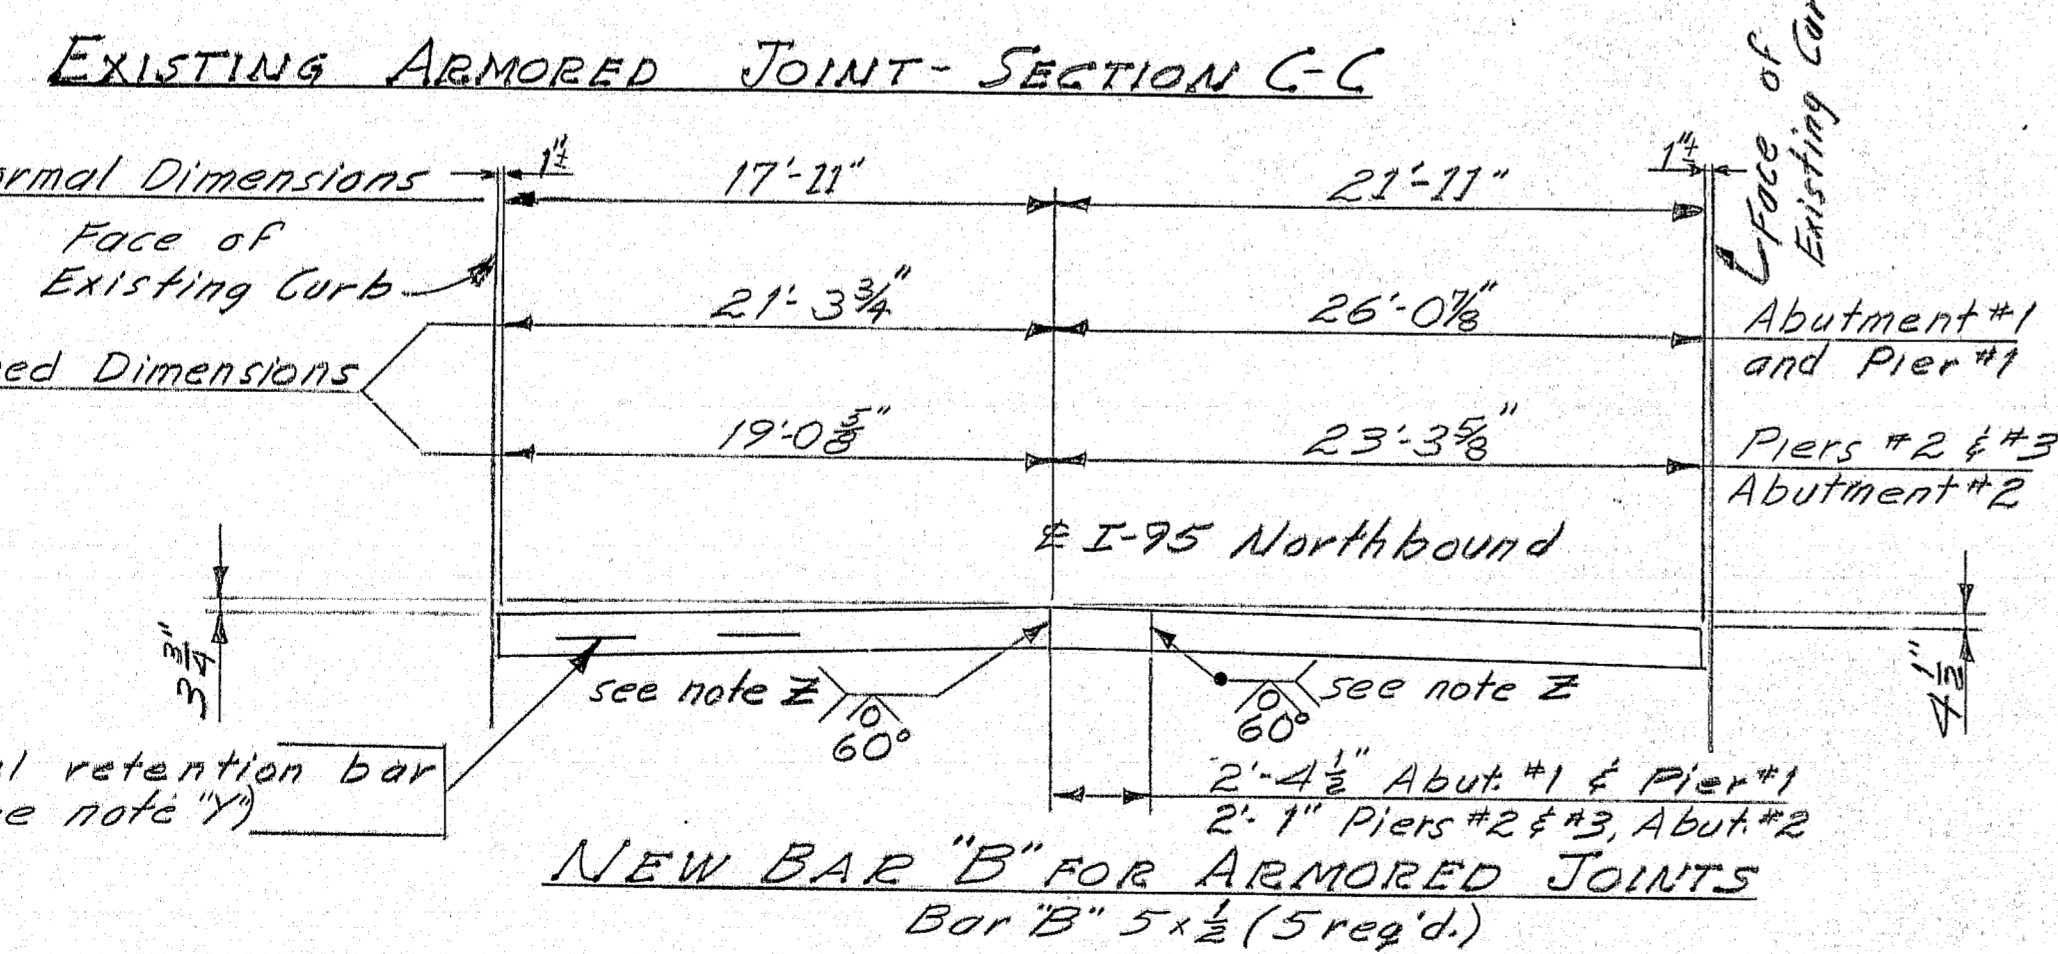 EXISTING ARMORED JOINT - SECTION C-C
Normal Dimensions
1"±
17'-11"
21'-11"
1"±
Face of
Existing Curb
Face of
Existing Cur
21'-3 3/4"
26'-0 7/8"
Abutment #1
and Pier #1
ed Dimensions
19'-0 5/8"
23'-3 5/8"
Piers #2 & #3
Abutment #2
℄ I-95 Northbound
3 3/4"
4 1/2"
see note Z
60°
see note Z
60°
l retention bar
e note "Y")
2'-4 1/2" Abut. #1 & Pier #1
2'-1" Piers #2 & #3, Abut. #2
NEW BAR "B" FOR ARMORED JOINTS
Bar "B" 5 x 1/2 (5 req'd.)